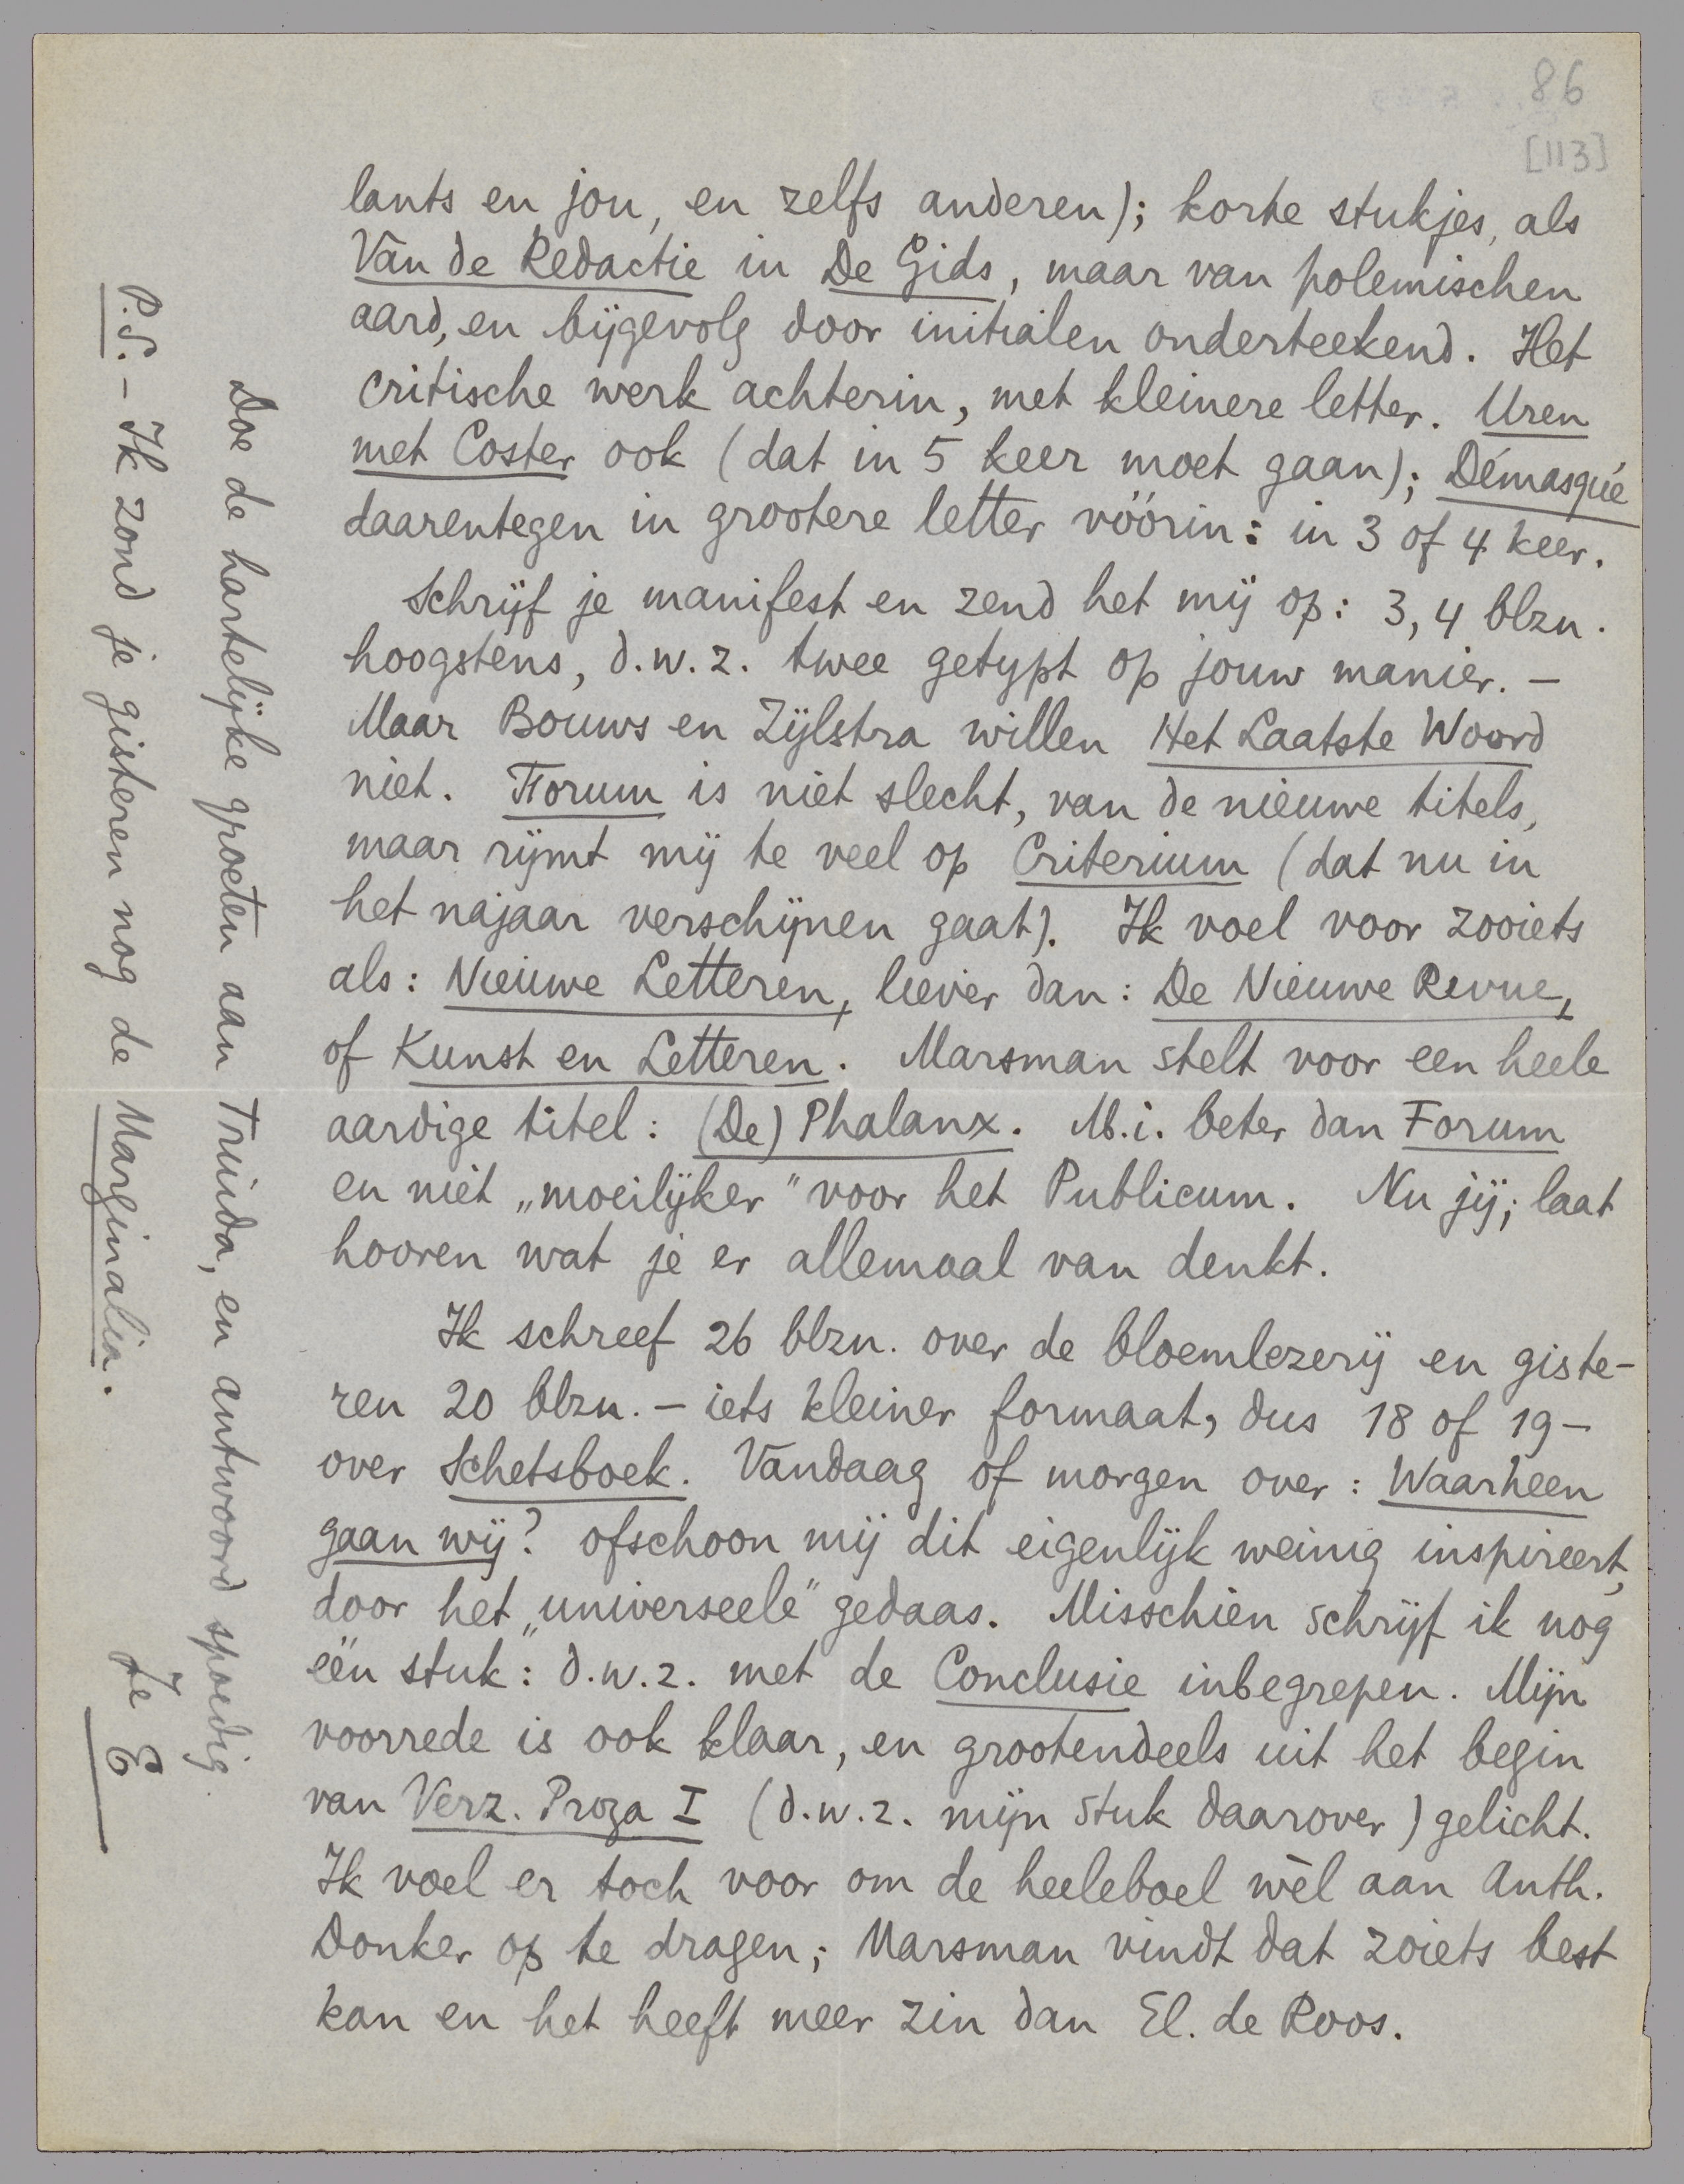 86
[113]
lants en jou, en zelfs anderen); korte stukjes, als
Van de Redactie in De Gids, maar van polemischen
aard, en bijgevolg door initialen onderteekend. Het
critische werk achterin, met kleinere letter. Uren
met Coster ook (dat in 5 keer moet gaan); Démasqué
daarentegen in grootere letter vóórin: in 3 of 4 keer.
Schrijf je manifest en zend het mij op: 3, 4 blzn.
hoogstens, d.w.z. twee getypt op jouw manier. –
Maar Bouws en Zijlstra willen Het Laatste Woord
niet. Forum is niet slecht, van de nieuwe titels,
maar rijmt mij te veel op Criterium (dat nu in
het najaar verschijnen gaat). Ik voel voor zooiets
als: Nieuwe Letteren, liever dan: De Nieuwe Revue,
of Kunst en Letteren. Marsman stelt voor een heele
aardige titel: (De) Phalanx. M.i. beter dan Forum
en niet „moeilijker” voor het Publicum. Nu jij; laat
hooren wat je er allemaal van denkt.
Ik schreef 26 blzn. over de bloemlezerij en giste-
ren 20 blzn. – iets kleiner formaat, dus 18 of 19 –
over Schetsboek. Vandaag of morgen over: Waarheen
gaan wij? ofschoon mij dit eigenlijk weinig inspireert,
door het „universeele” gedaas. Misschien schrijf ik nog
één stuk: d.w.z. met de Conclusie inbegrepen. Mijn
voorrede is ook klaar, en grootendeels uit het begin
van Verz. Proza I (d.w.z. mijn stuk daarover) gelicht.
Ik voel er toch voor om de heeleboel wèl aan Anth.
Donker op te dragen; Marsman vindt dat zoiets best
kan en het heeft meer zin dan El. de Roos.
Doe de hartelijke groeten aan Truida, en antwoord spoedig.
Je E
P.S. – Ik zond je gisteren nog de Marginalia.